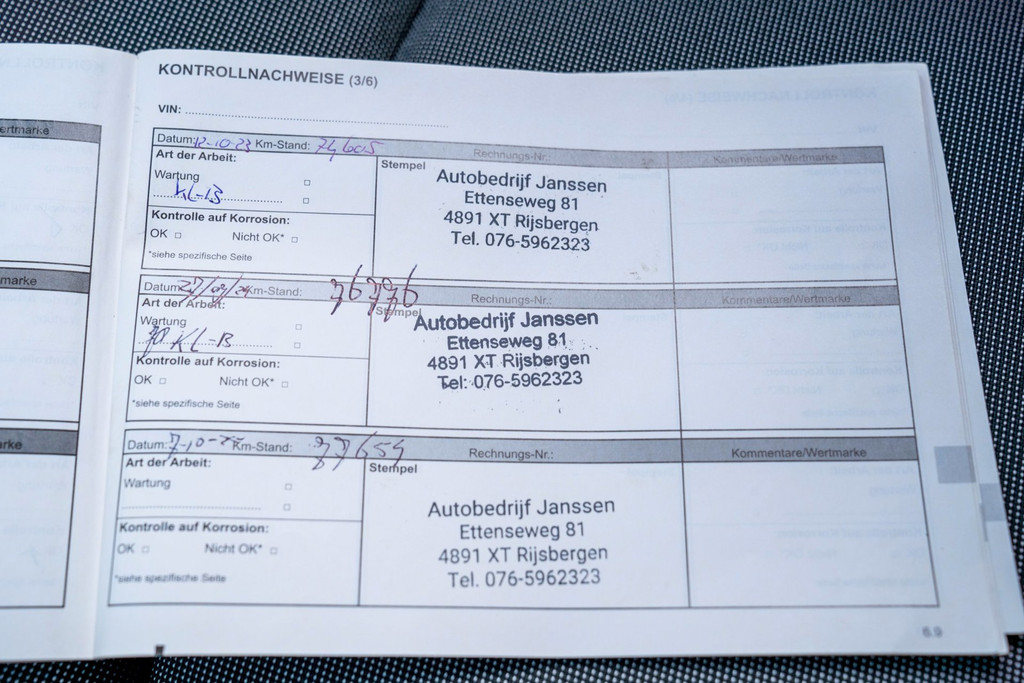 KONTROLLNACHWEISE (3/6)
VIN:
ertmarke
Datum: 12-10-23 Km-Stand: 74605 Rechnungs-Nr.: Kommentare/Wertmarke
Art der Arbeit:
Stempel
Wartung
KL-B
Kontrolle auf Korrosion:
OK Nicht OK*
*siehe spezifische Seite
Autobedrijf Janssen
Ettenseweg 81
4891 XT Rijsbergen
Tel. 076-5962323
marke
Datum: Km-Stand: 76776 Rechnungs-Nr.: Kommentare/Wertmarke
Art der Arbeit:
Stempel
Wartung
KL-B
Kontrolle auf Korrosion:
OK Nicht OK*
*siehe spezifische Seite
Autobedrijf Janssen
Ettenseweg 81
4891 XT Rijsbergen
Tel: 076-5962323
rke
Datum: Km-Stand: Rechnungs-Nr.: Kommentare/Wertmarke
Art der Arbeit:
Stempel
Wartung
Kontrolle auf Korrosion:
OK Nicht OK*
*siehe spezifische Seite
Autobedrijf Janssen
Ettenseweg 81
4891 XT Rijsbergen
Tel. 076-5962323
6.9